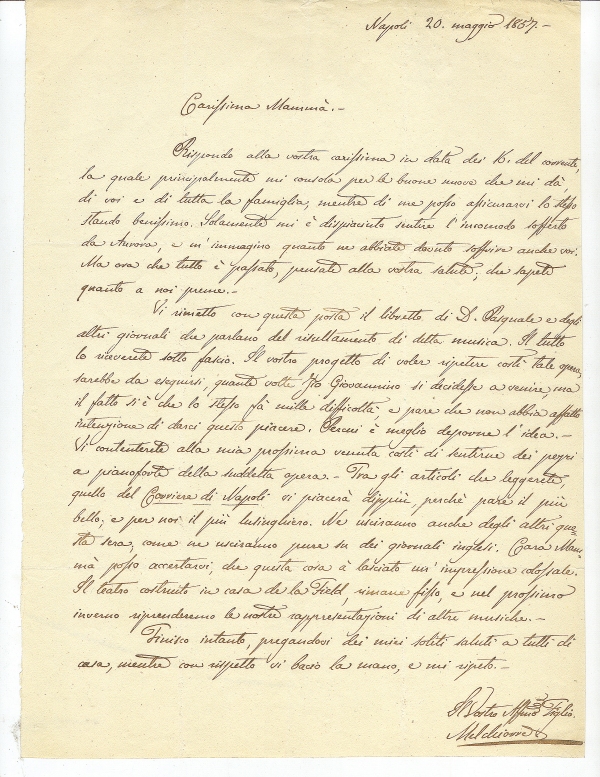 Napoli 20. maggio 1857.-
Carissima Mammà.-
Rispondo alla vostra carissima in data dei 16. del corrente,
la quale principalmente mi consola per le buone nuove che mi dà,
di voi e di tutta la famiglia, mentre di me posso assicurarvi lo stesso
stando benissimo. Solamente mi è dispiaciuto sentire l'incomodo sofferto
da Aurora, e m'immagino quanto ne abbiate dovuto soffrire anche voi.
Ma ora che tutto è passato, pensate alla vostra salute, che sapete
quanto a noi preme.-
Vi rimetto con questa posta il libretto di D. Pasquale e degli
altri giornali che parlano del risultamento di detta musica. Il tutto
lo riceverete sotto fascio. Il vostro progetto di voler ripetere costì tale opera,
sarebbe da eseguirsi, quante volte Zio Giovannino si decidesse a venire, ma
il fatto si è che lo stesso fà mille difficoltà, e pare che non abbia affatto
intenzione di darci questo piacere. Perciò è meglio deporne l'idea.-
Vi contenterete alla mia prossima venuta costì di sentirne dei pezzi
a pianoforte della suddetta opera.- Tra gli articoli che leggerete,
quello del Corriere di Napoli vi piacerà dippiù, perchè pare il più
bello, e per noi il più lusinghiero. Ne usciranno anche degli altri que-
sta sera, come ne usciranno pure su dei giornali inglesi. Cara Mam-
mà posso accertarvi, che questa cosa à lasciato un'impressione colossale.
Il teatro costruito in casa de la Field, rimane fisso, e nel prossimo
inverno riprenderemo le nostre rappresentazioni di altre musiche.-
Finisco intanto, pregandovi dei miei soliti saluti a tutti di
casa, mentre con rispetto vi bacio la mano, e mi ripeto.-
Il Vostro Affmo Figlio
Melchiorre